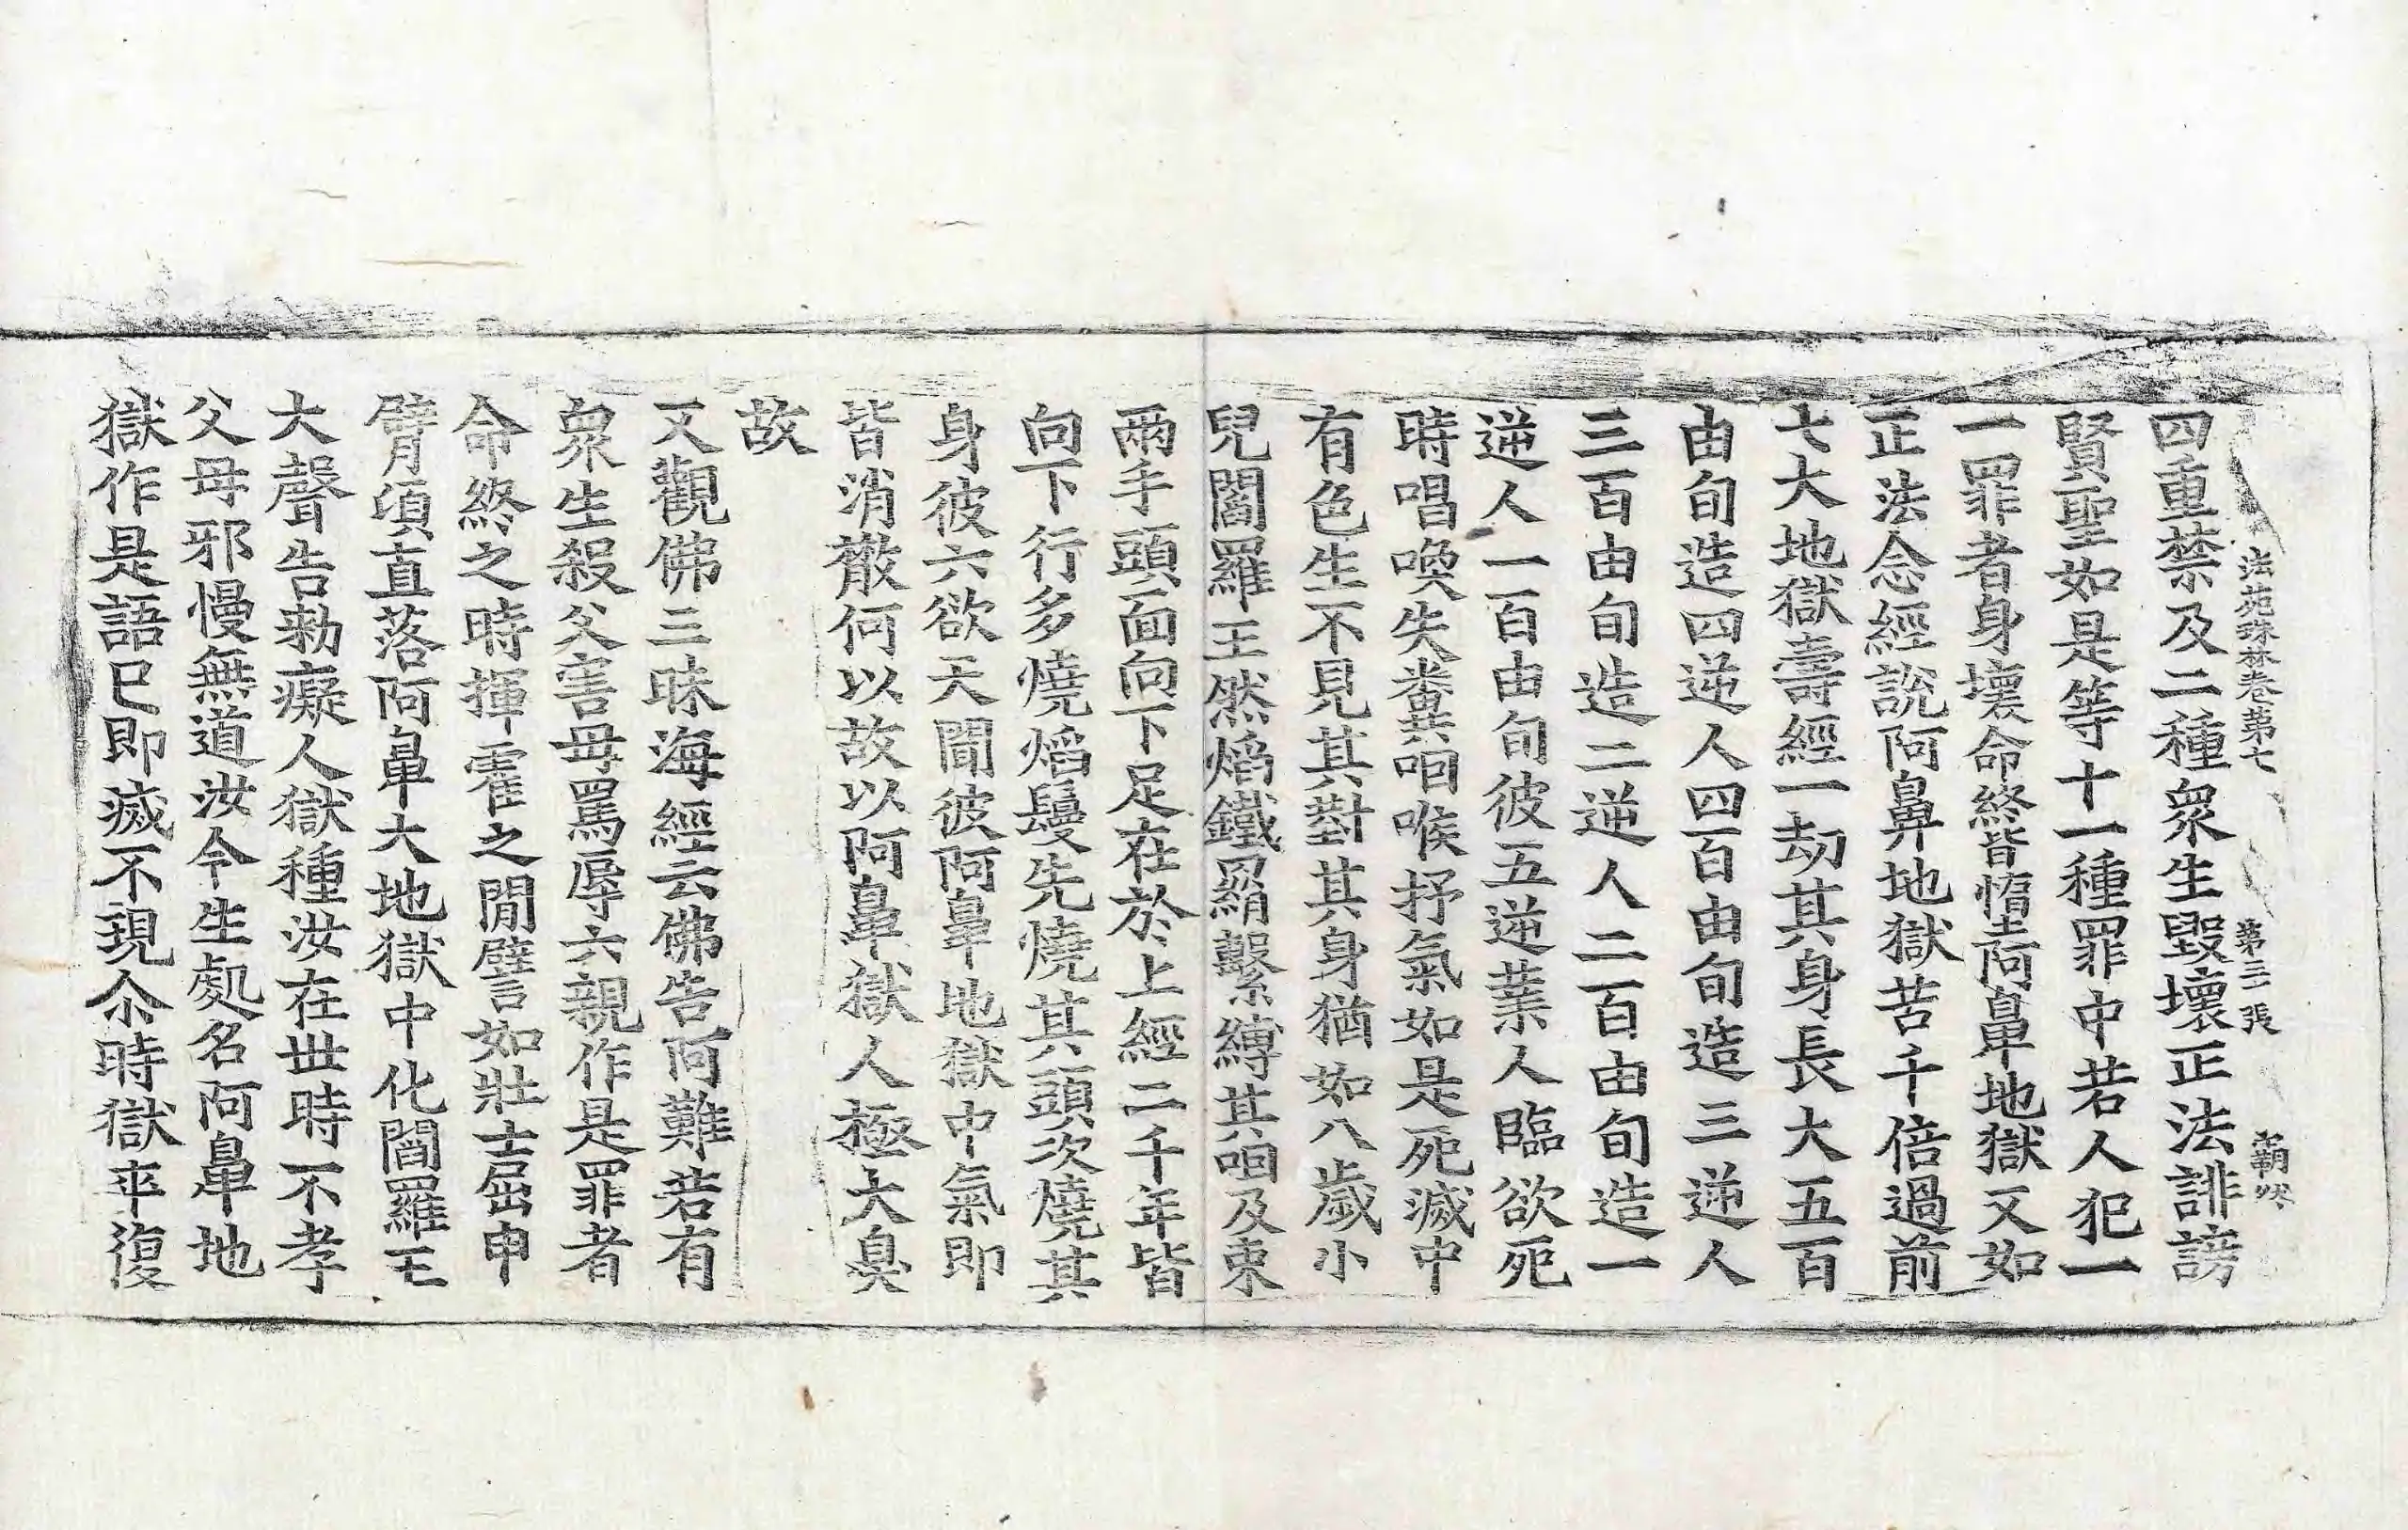 法苑珠林卷第七 第三張 覇
四重禁及二種衆生毀壞正法誹謗
賢聖如是等十一種罪中若人犯一
一罪者身壞命終皆墮阿鼻地獄又如
正法念經說阿鼻地獄苦千倍過前
七大地獄壽經一劫其身長大五百
由旬造四逆人四百由旬造三逆人
三百由旬造二逆人二百由旬造一
逆人一百由旬彼五逆業人臨欲死
時唱喚失糞咽喉抒氣如是死滅中
有色生不見其對其身猶如八歲小
兒閻羅王然焰鐵羂繫縛其咽及束
兩手頭面向下足在於上經二千年皆
向下行多燒焰鬘先燒其頭次燒其
身彼六欲天聞彼阿鼻地獄中氣即
皆消散何以故以阿鼻獄人極大臭
故
又觀佛三昧海經云佛告阿難若有
衆生殺父害母罵辱六親作是罪者
命終之時揮霍之間譬如壯士屈申
臂頃直落阿鼻大地獄中化閻羅王
大聲告勑癡人獄種汝在世時不孝
父母邪慢無道汝今生處名阿鼻地
獄作是語已即滅不現尒時獄卒復